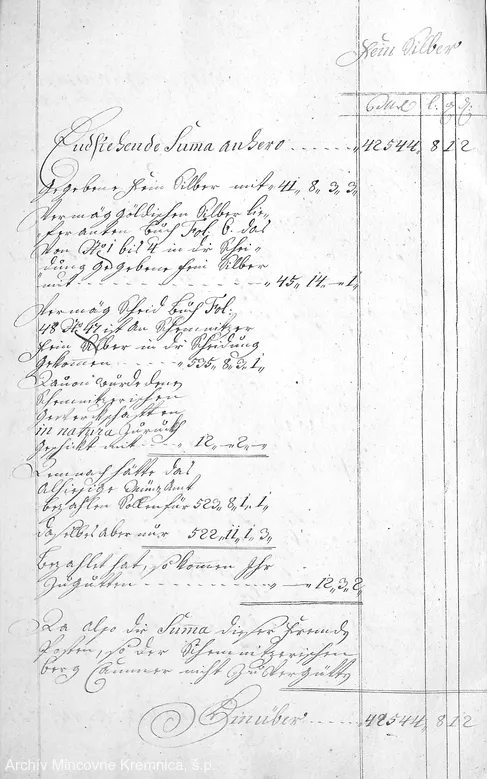 Fein Silber
Mark l. q. d.
Endstehende Suma anhero ..... 42544,, 8 1 2
Gegebene Fein Silber mit ,, 41,, 8,, 3,, 3,,
Vermög göldischen Silber Lie-
feranten Buch Fol. 6. das
Von No 1 bis in dr Schei-
dung Gegebene fein Silber
mit - - - - - ,, 45,, 14,, - 1,,
Vermög Scheid Buch Fol:
48 No 47 ist An Schemnitzer
Fein Silber in dr Scheidung
Gekomen ..... 535,, 8,, 3,, 1,,
Davon wurde denen
Schemnitzerischen
Gewerckschafften
in natura Zuruckh
Geschickt mit - - ,, 12,, - 2,, -
Demnach hätte das
Alhiesige Münz Amt
bezahlen Sollen für 523,, 8,, 1,, 1,,
daselbes aber nur 522,, 11,, 1,, 3,,
bezahlet hat, so komen Ihr
Zugutten - - - - - - - 12,, 3,, 2,,
Da also die Suma dieser Fremde
Posten, so der Schemnitzerischen
berg Cammer nicht Zu Vergütten
Hinüber ..... 42544,, 8 1 2
Archív Mincovne Kremnica, š.p.